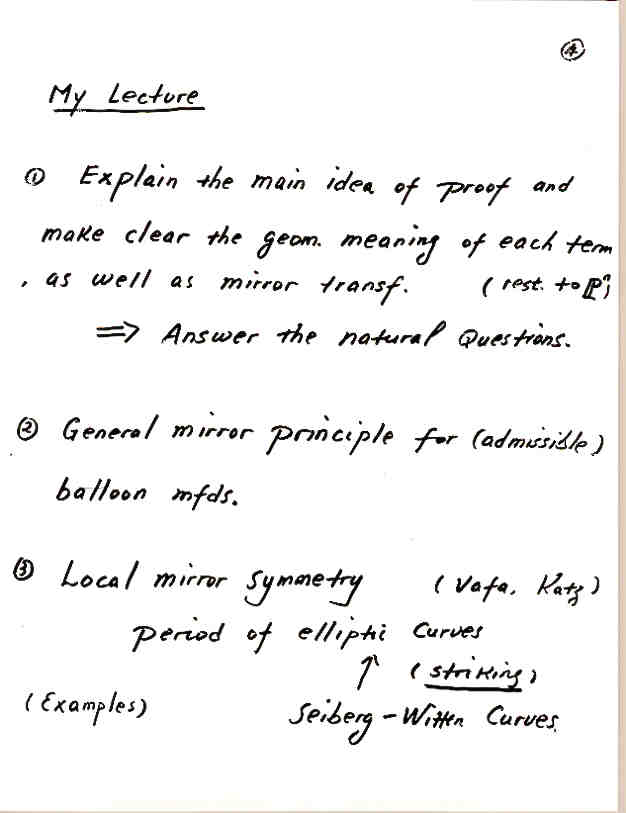 ④
My Lecture
① Explain the main idea of proof and
make clear the geom. meaning of each term
, as well as mirror transf. (rest. to ℙⁿ)
⇒ Answer the natural Questions.
② General mirror principle for (admissible)
balloon mfds.
③ Local mirror symmetry (Vafa, Katz)
period of elliptic Curves
↑ (striking)
(Examples) Seiberg-Witten Curves.